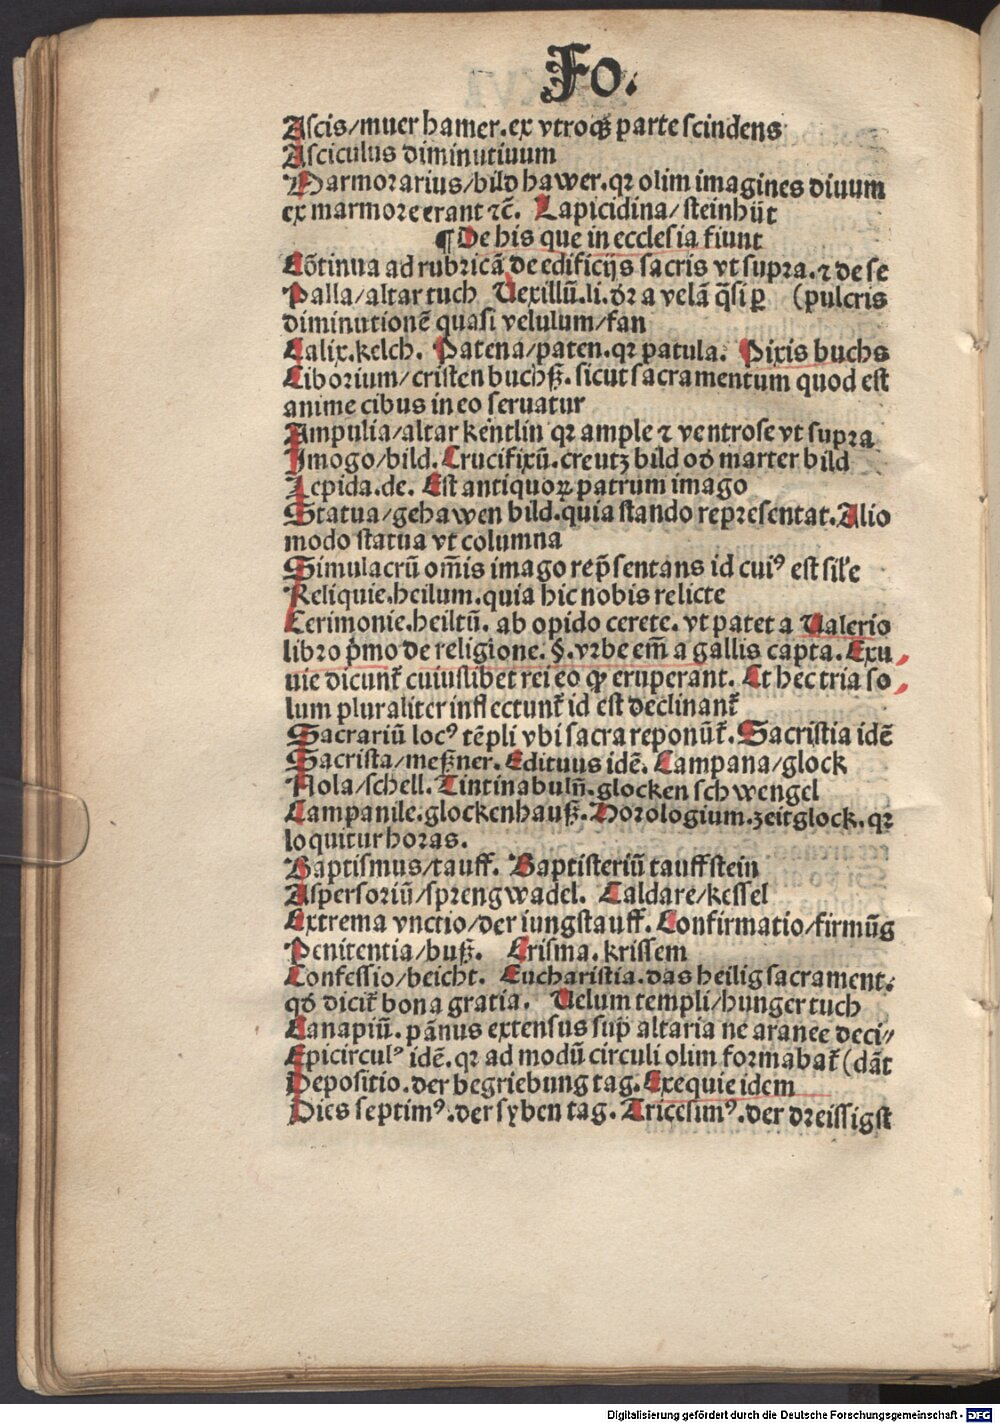 Fo.
Ascis/muer hamer.ex vtroqꝫ parte scindens
Asciculus diminutiuum
Marmorarius/bild hawer.qꝛ olim imagines diuum
ex marmore erant ⁊c̄. Lapicidina/steinhüt
¶De his que in ecclesia fiunt
Cōtinua ad rubricā de edificijs sacris vt supra.⁊ de se
Palla/altar tuch Uexillū.li.dr a velā q̄si ꝑ (pulcris
diminutionē quasi velulum/fan
Calix.kelch. Patena/paten.qꝛ patula. Pixis buchs
Ciborium/cristen buchß.sicut sacramentum quod est
anime cibus in eo seruatur
Ampulia/altar kentlin qꝛ ample ⁊ ventrose vt supra
Imogo/bild. Crucifixū.creutz bild od marter bild
Lepida.de. Est antiquoꝝ patrum imago
Statua/gehawen bild.quia stando representat.Alio
modo statua vt columna
Simulacrū om̄is imago rep̄sentans id cuiꝰ est sil'e
Reliquie.heilum.quia hic nobis relicte
Cerimonie.heiltū. ab opido cerete. vt patet a Ualerio
libro p̄mo de religione. §.vrbe em̄ a gallis capta. Exu
uie dicunt᷑ cuiuslibet rei eo ꝙ eruperant. Et hec tria so
lum pluraliter inflectunt᷑ id est declinant᷑
Sacrariū locꝰ tēpli vbi sacra reponūt᷑.Sacristia idē
Sacrista/meßner. Edituus idē. Campana/glock
Nola/schell.Tintinabulū.glocken schwengel
Campanile.glockenhauß.Horologium.zeitglock.qꝛ
loquitur horas.
Baptismus/tauff. Baptisteriū tauffstein
Aspersoriū/sprengwadel. Caldare/kessel
Extrema vnctio/der iungstauff.Confirmatio/firmūg
Penitentia/buß. Crisma.krissem
Confessio/beicht. Eucharistia.das heilig sacrament.
qd dicit᷑ bona gratia. Uelum templi/hunger tuch
Canapiū.pānus extensus sup̄ altaria ne aranee deci⸗
Epicirculꝰ idē.qꝛ ad modū circuli olim formabat᷑ (dāt
Depositio.der begriebung tag.Exequie idem
Dies septimꝰ.der syben tag.Tricesimꝰ.der dreissigst
Digitalisierung gefördert durch die Deutsche Forschungsgemeinschaft - DFG